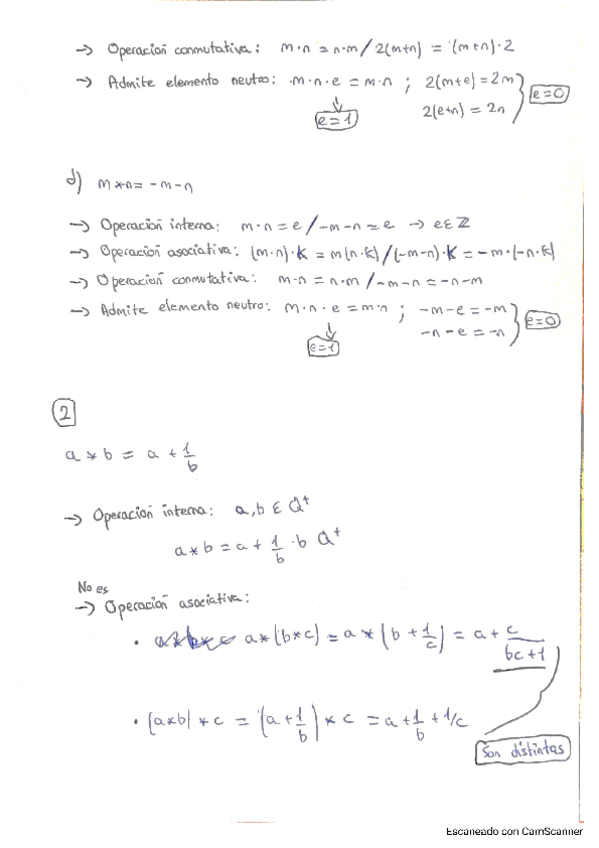 → Operación conmutativa: m·n = n·m / 2(m+n) = (m+n)·2
→ Admite elemento neutro: m·n·e = m·n ; 2(m+e) = 2m
2(e+n) = 2n
e=0
e=1
d) m*n = -m-n
→ Operación interna: m·n = e / -m-n = e → e∈ℤ
→ Operación asociativa: (m·n)·K = m(n·K) / (-m-n)·K = -m·(-n·K)
→ Operación conmutativa: m·n = n·m / -m-n = -n-m
→ Admite elemento neutro: m·n·e = m·n ; -m-e = -m
-n-e = -n
e=0
e=1
2
a * b = a + 1/b
→ Operación interna: a,b ∈ Q⁺
a*b = a + 1/b · b Q⁺
No es
→ Operación asociativa:
• a*(b*c) = a*(b + 1/c) = a + c/bc+1
• (a*b)*c = (a + 1/b) * c = a + 1/b + 1/c
Son distintas
Escaneado con CamScanner